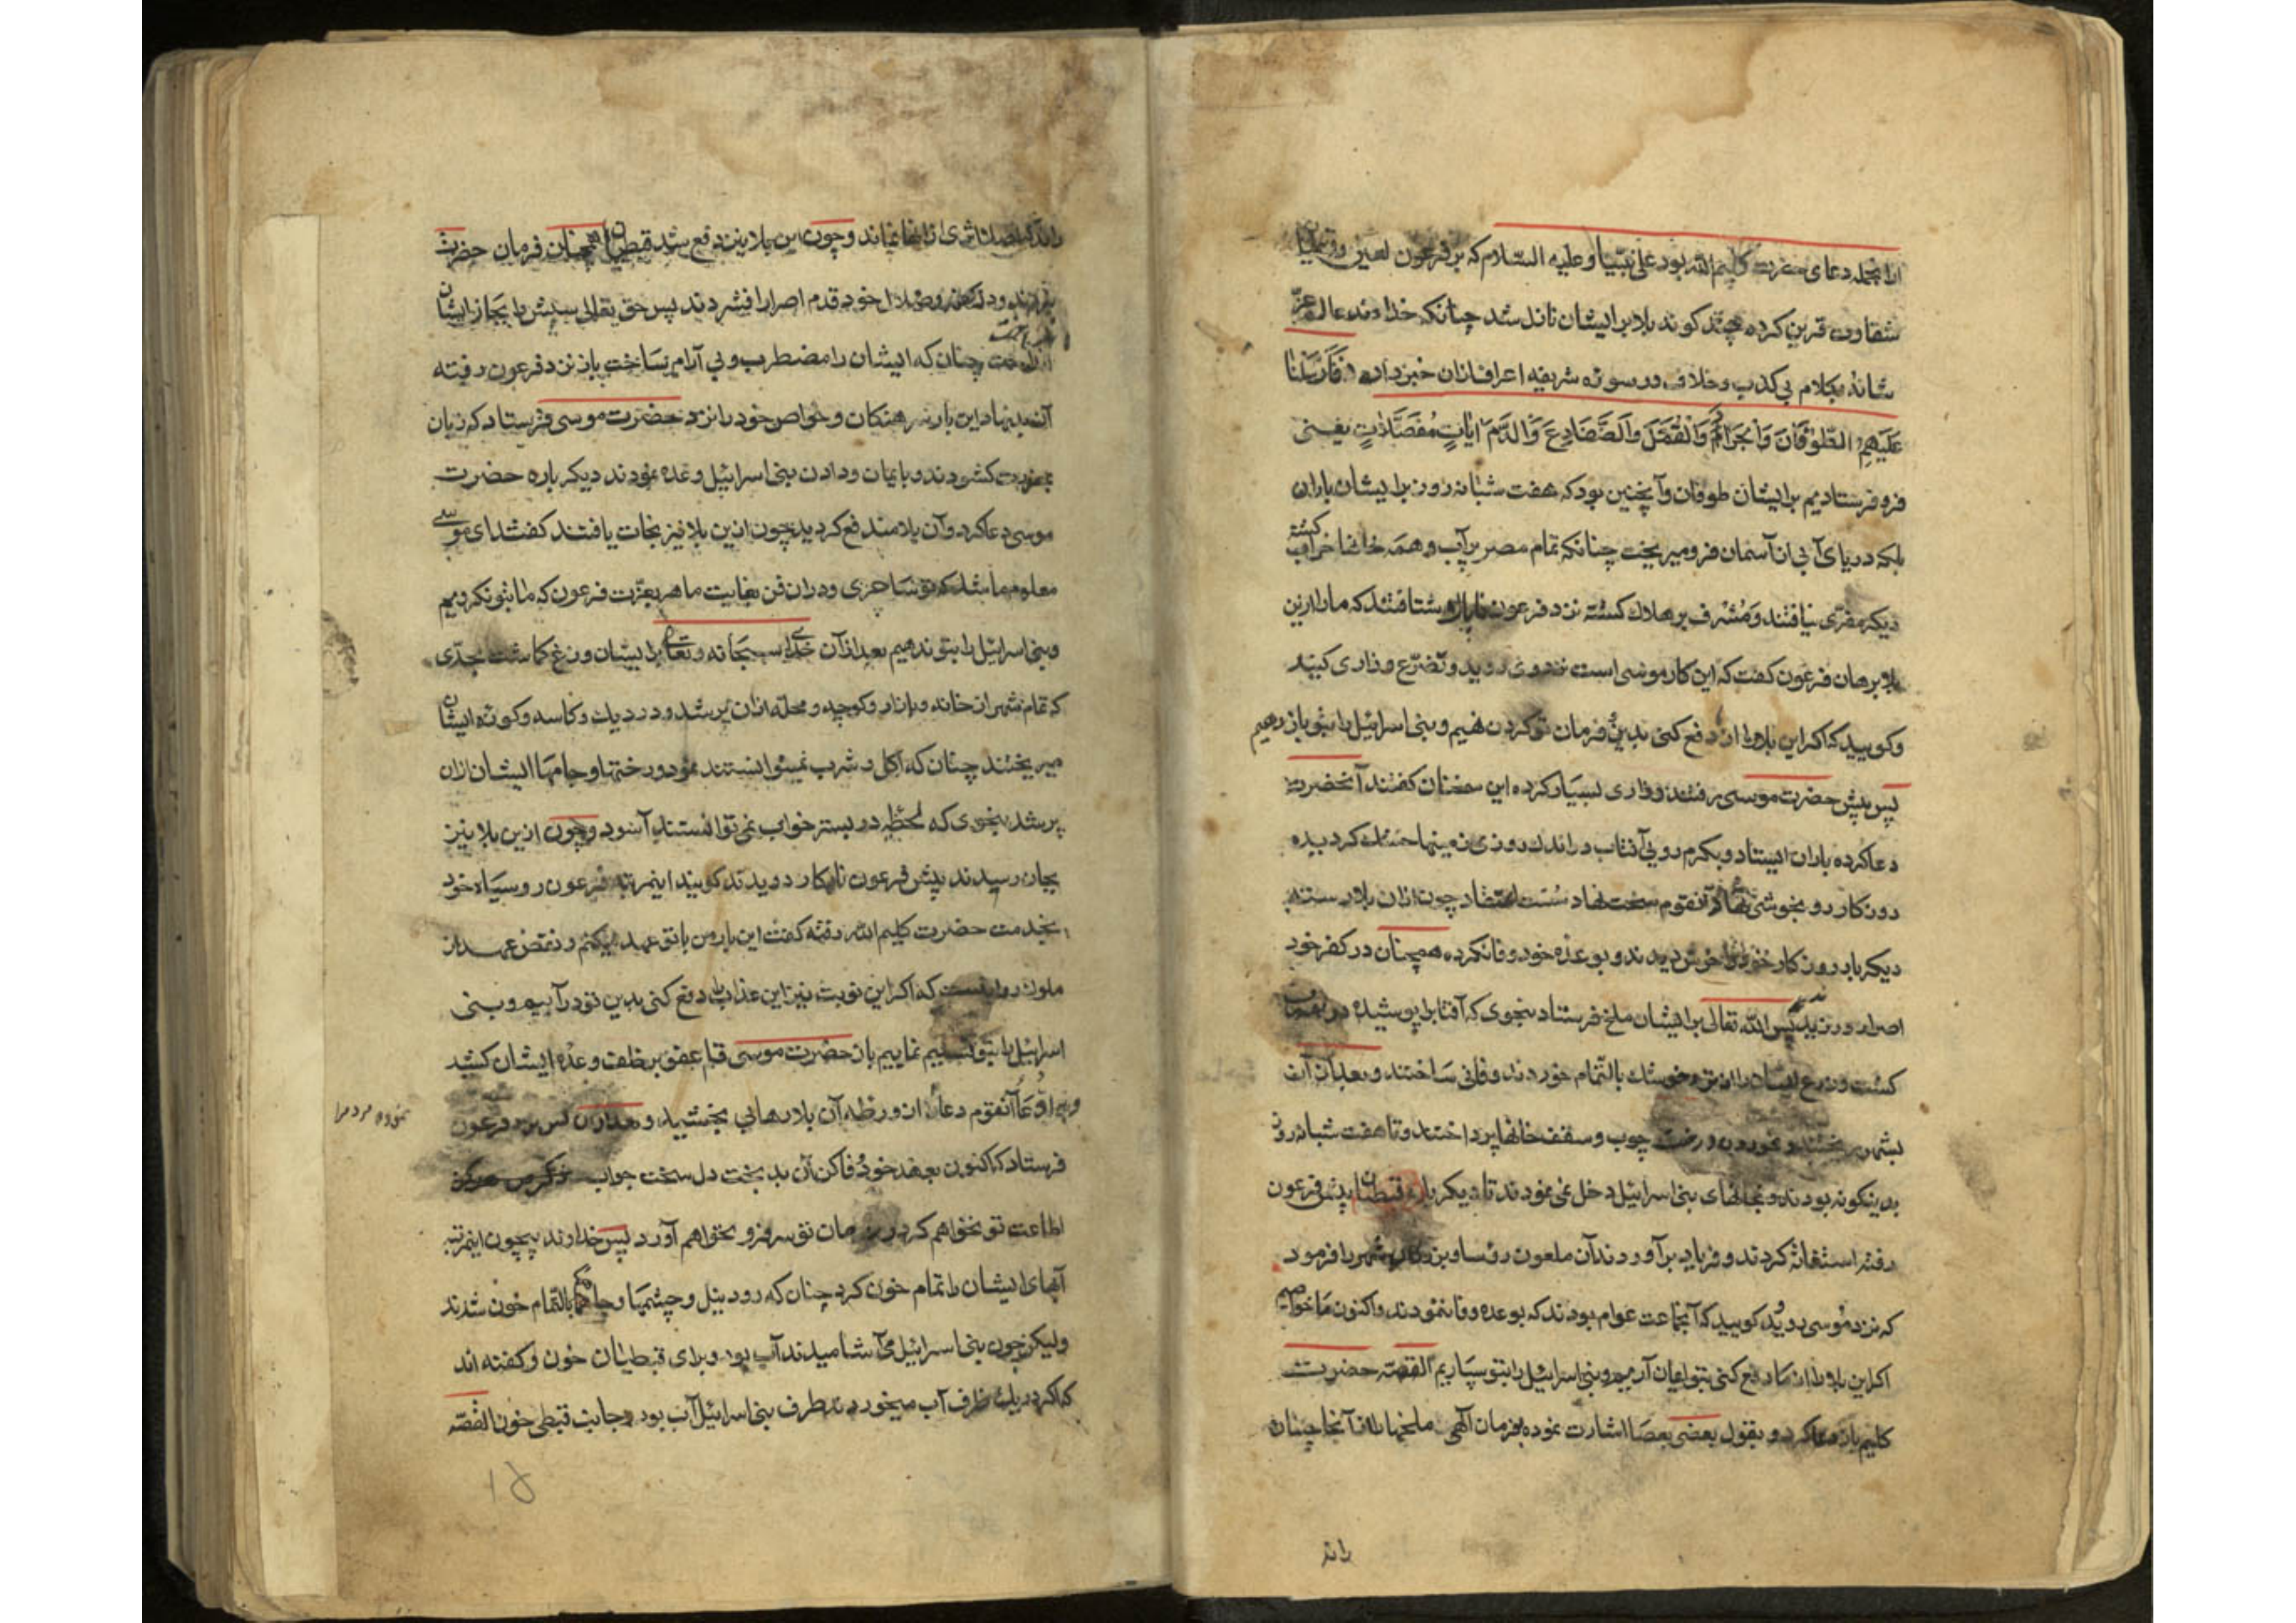 ازانجمله دعای حضرت کلیم الله بود علی نبینا و علیه السلام که بر فرعون لعین و قبطیان
شقاوت قرین کرده چند کونه بلا بر ایشان نازل شد چنانکه خداوند عالم عزّ
شانه بکلام بی کذب و خلاف در سوره شریفه اعراف ازان خبر داده فَاَرْسَلْنا
عَلَیْهِمُ الطّوُفَانَ وَالْجَرادَ وَالْقُمَّلَ وَالضَّفَادِعَ وَالدَّمَ ایَاتٍ مُفَصَّلَاتٍ یعنی
فرو فرستادیم بر ایشان طوفان و آنچنین بود که هفت شبانه روز بر ایشان باران
بلکه دریای آبی از آسمان فرو میریخت چنانکه تمام مصر پر آب و همه خانها خراب کشته
دیکر مفرّی نیافتند و مُشرف بر هلاک کشته نزد فرعون شتافتند که ما را ازین
بلا برهان فرعون کفت که این کار موسی است نزد وی روید و تضرّع و زاری کنید
و کویید که اکر این بلا را از ما دفع کنی بدین و فرمان تو کردن نهیم و بنی اسرائیل را بتو باز دهیم
پس پیش حضرت موسی رفتند و زاری بسیار کرده این سخنان کفتند آنحضرت
دعا کرده باران ایستاد و بکرم رویی آفتاب در اندک روزی زمینها خشک کردیده
روزکار رو بخوشی نهاد آنقوم سخت نهاد سُست اعتقاد چون ازان بلا رستند
دیکر بار روزکار خود را خوش دیدند و بوعده خود وفا نکرده همچنان در کفر خود
اصرار ورزیدند پس الله تعالی بر ایشان ملخ فرستاد بنحوی که آفتاب را پوشیده
کشت و زرع ایشان را از تر و خشک بالتمام خوردند و فانی ساختند و بعد ازان
بشهر ریختند و بخوردن درخت چوب و سقف خانها پرداختند و تا هفت شبانه روز
بدینکونه بودند و بخانهای بنی اسرائیل دخل نمی نمودند تا دیکر باره قبطیان پیش فرعون
رفته استغاثه کردند و فریاد برآوردند آن ملعون رؤسا و بزرکان شهر را فرمود
که نزد موسی روید و کویید که آنجماعت عوام بودند که بوعده وفا ننمودند و اکنون ما خواهیم
اکر این بلا را از ما دفع کنی بتو ایمان آریم و بنی اسرائیل را بتو سپاریم القصّه حضرت
کلیم باز دعا کرد و بقول بعضی بعصا اشارت نموده بفرمان الٓهی ملخها را از آنجا چنان
راند
راند که اصلا اثری از آنها نماند و چون این بلا نیز دفع شد قبطیان همچنان فرمان حضرت
نبردند و در کفر و ضلال خود قدم اصرار افشردند پس حق تعالی سپش را بجان ایشان
انداخت چنان که ایشان را مضطرب و بی آرام بساخت باز نزد فرعون رفته
آن بدنهاد این بار سرهنکان و خواص خود را نزد حضرت موسی فرستاد که زبان
بمعذرت کشودند و بایمان و دادن بنی اسرائیل وعده نمودند دیکر باره حضرت
موسی دعا کرد و آن بلا مندفع کردید چون ازین بلا نیز نجات یافتند کفتند ای موسی
معلوم ما شد که تو ساحری و در ان فن بغایت ماهر بعزّت فرعون که ما بتو نکرویم
و بنی اسرائیل را بتو ندهیم بعد از آن خدای سبحانه و تعالی بر ایشان وزغ کماشت بحدّی
که تمام شهر از خانه و بازار و کوچه و محله ازان پر شد و در دیک و کاسه و کوزه ایشان
میریختند چنان که اکل و شرب نمیتوانستند نمود و رختها و جامها ایشان ازان
پر شد بنحوی که لحظه در بستر خواب نمی توانستند آسود و چون ازین بلا نیز
بجان رسیدند پیش فرعون نابکار دویدند کویند اینمرتبه فرعون رو سیاه خود
بخدمت حضرت کلیم الله رفته کفت این بار من با تو عهد میکنم و نقض عهد از
ملوک روا نیست که اکر این نوبت نیز این عذاب را دفع کنی بدین تو درآییم و بنی
اسرائیل را بتو تسلیم نماییم باز حضرت موسی قلم عفو بر خلف وعده ایشان کشید
آنقوم دعا از ورطه آن بلا رهایی بخشید و بعد ازان کس نزد فرعون
نموده مردم را
فرستاد که اکنون بعهد خود وفا کن آن بد بخت دل سخت جواب که من هرکز
اطاعت تو نخواهم کرد و بفرمان تو سر فرو نخواهم آورد پس خداوند بیچون اینمرتبه
آبهای ایشان را تمام خون کرد چنان که رود نیل و چشمها و چاهها بالتمام خون شدند
ولیکن چون بنی اسرائیل می آشامیدند آب بود و برای قبطیان خون و کفته اند
که اکر در یک ظرف آب میخوردند طرف بنی اسرائیل آب بود و جانب قبطی خون القصّه
۱۵